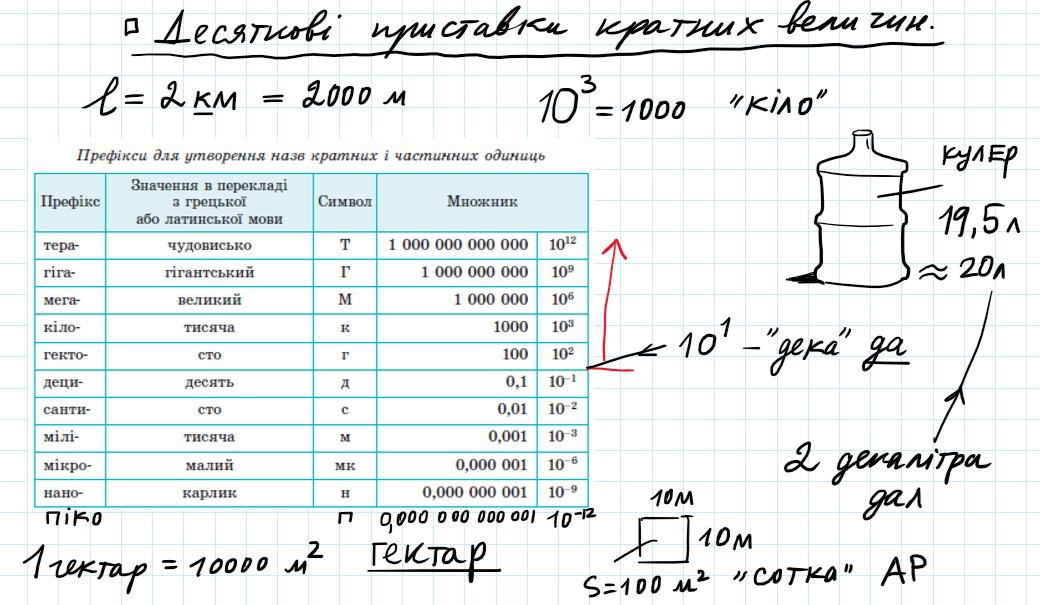 Десяткові приставки кратних величин.
l = 2 км = 2000 м
10³ = 1000 "кіло"
Префікси для утворення назв кратних і частинних одиниць
Префікс Значення в перекладі з грецької або латинської мови Символ Множник
тера- чудовисько Т 1 000 000 000 000 10¹²
гіга- гігантський Г 1 000 000 000 10⁹
мега- великий М 1 000 000 10⁶
кіло- тисяча к 1000 10³
гекто- сто г 100 10²
деци- десять д 0,1 10⁻¹
санти- сто с 0,01 10⁻²
мілі- тисяча м 0,001 10⁻³
мікро- малий мк 0,000 001 10⁻⁶
нано- карлик н 0,000 000 001 10⁻⁹
піко п 0,000 000 000 001 10⁻¹²
кулер
19,5 л
≈ 20 л
10¹ – "дека" да
2 декалітра
дал
1 гектар = 10000 м²
гектар
10 м
10 м
S = 100 м² "сотка" АР